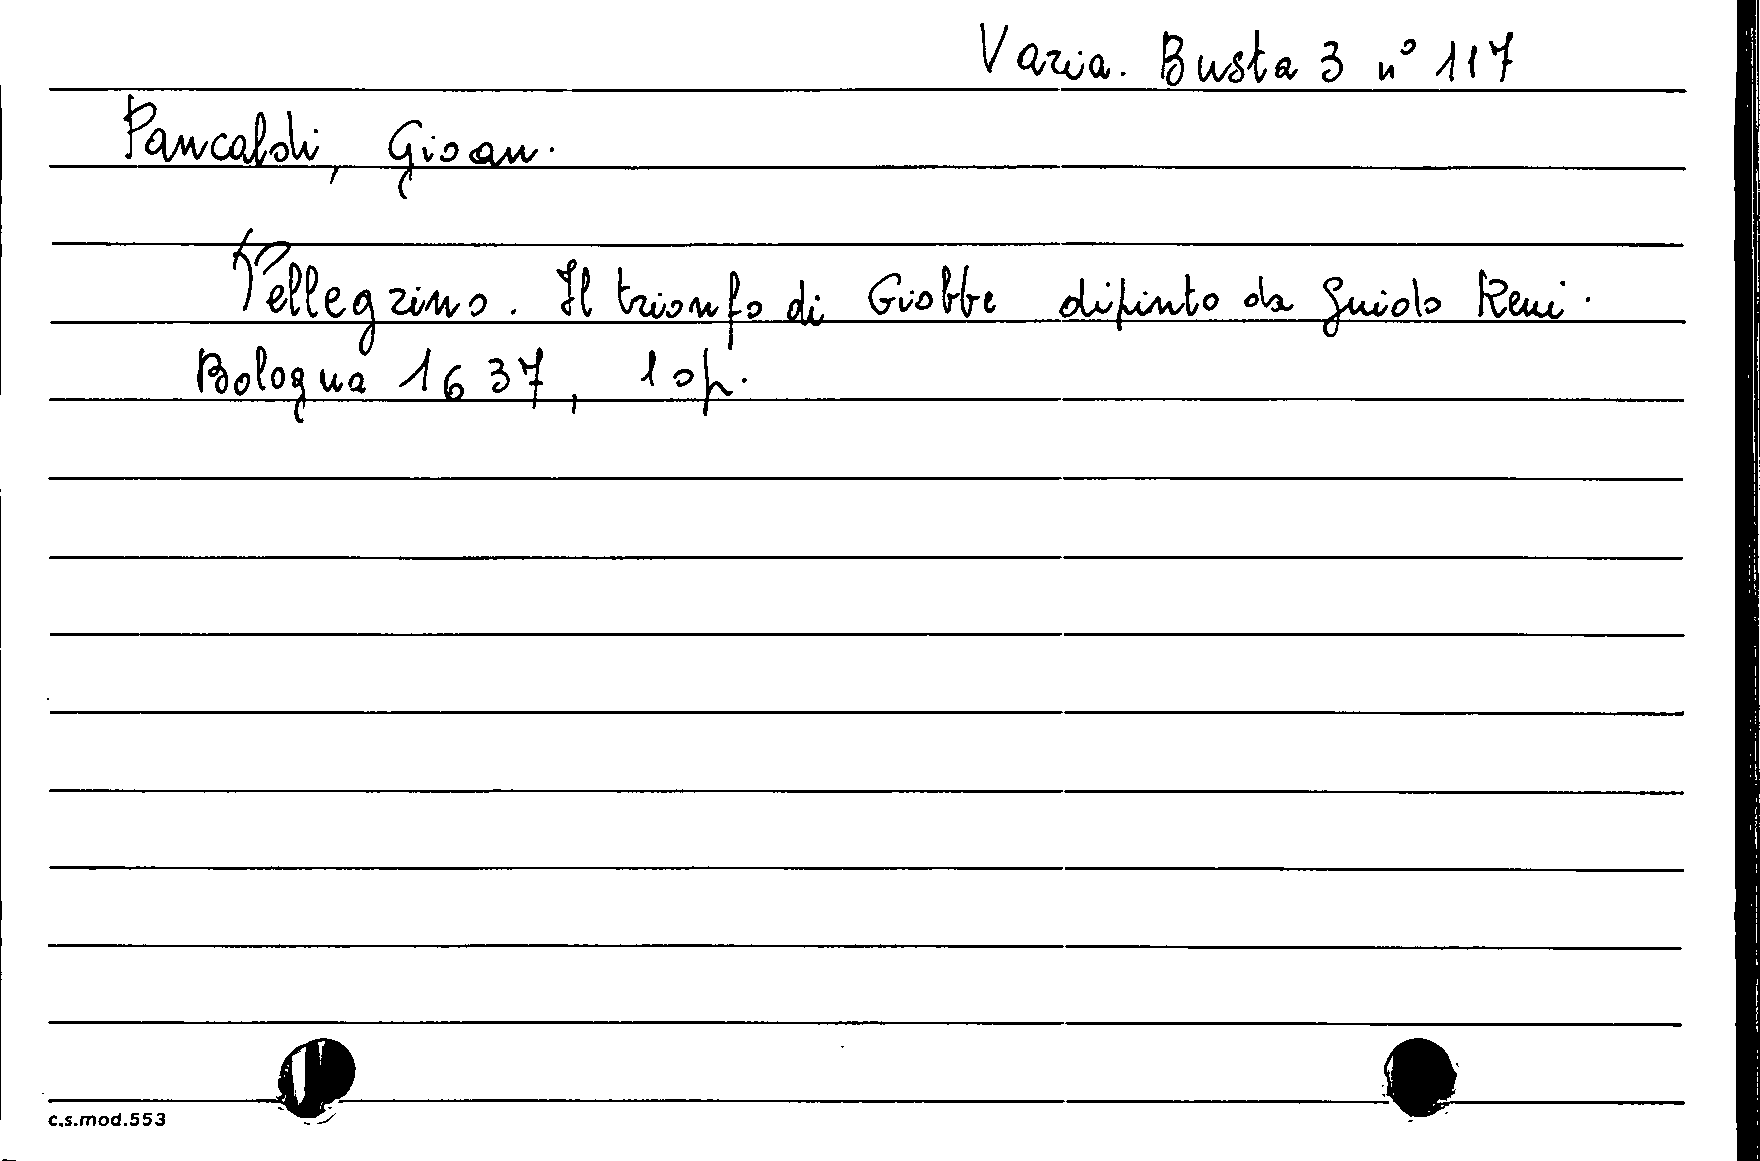 Varia. Busta 3 n° 117
Pancaldi, Gioan.
Pellegrino. Il trionfo di Giobbe dipinto da Guido Reni.
Bologna 1637, 10p.
c.s.mod.553